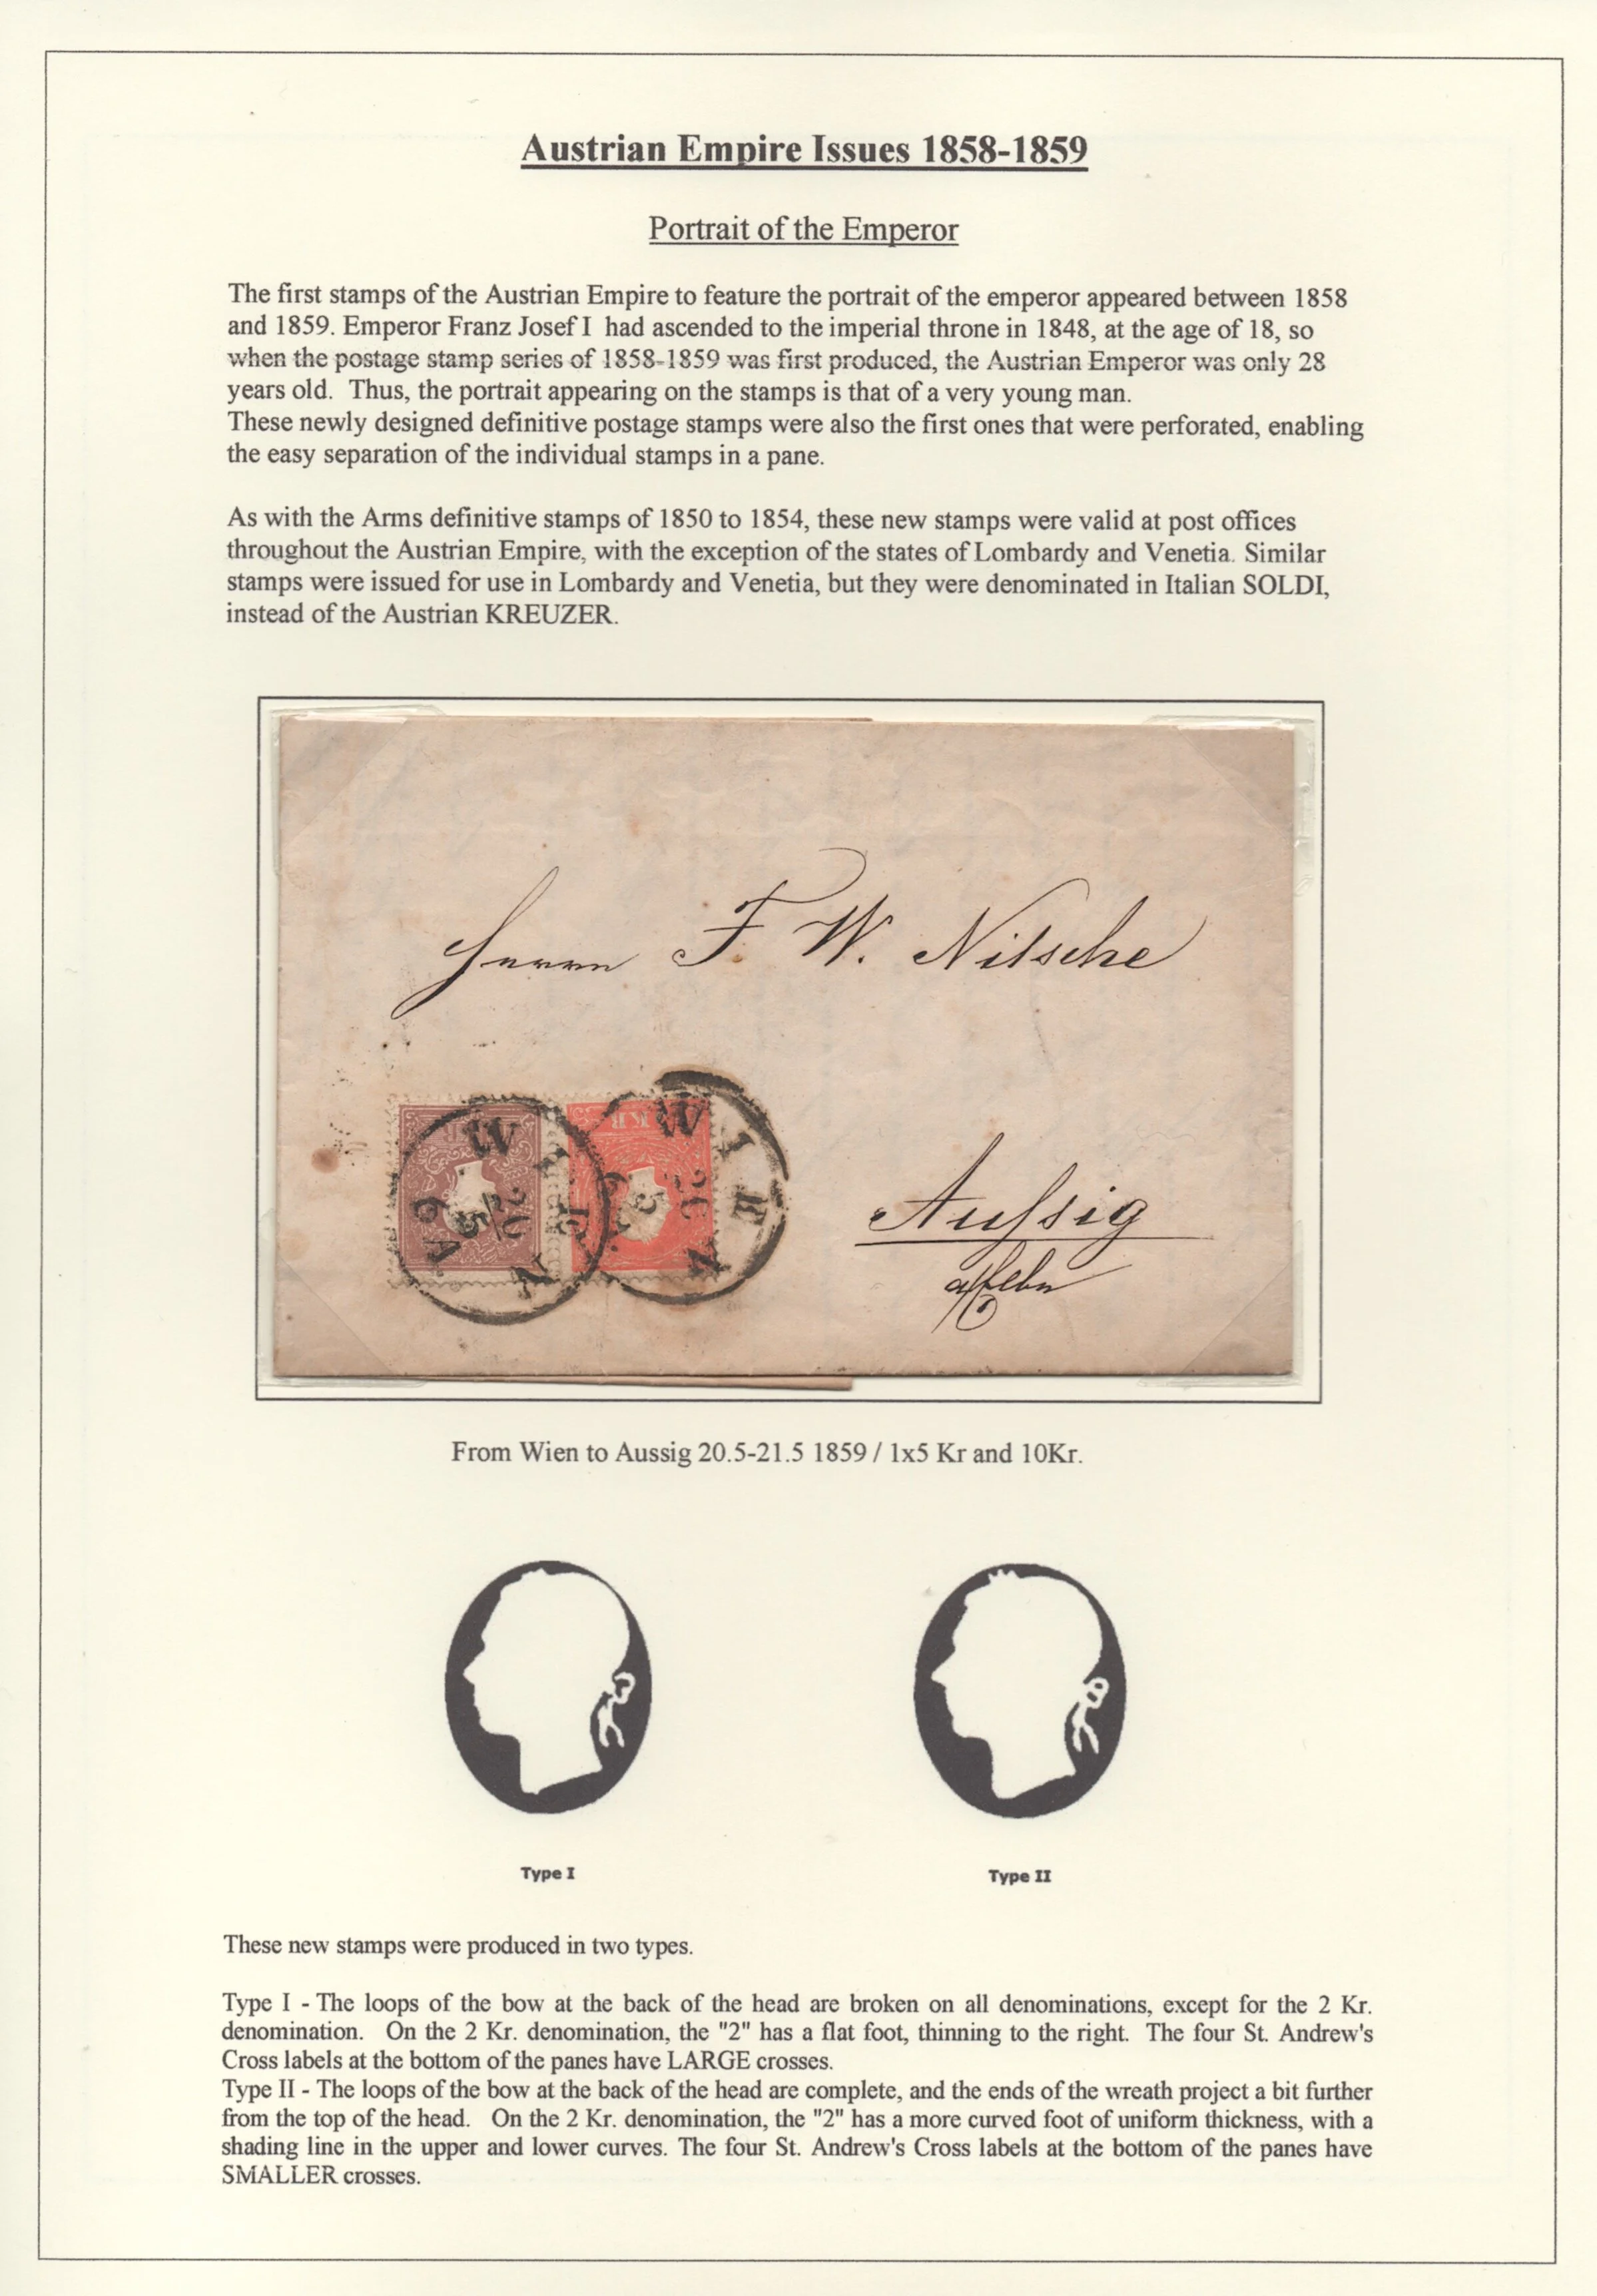 Austrian Empire Issues 1858-1859
Portrait of the Emperor
The first stamps of the Austrian Empire to feature the portrait of the emperor appeared between 1858
and 1859. Emperor Franz Josef I had ascended to the imperial throne in 1848, at the age of 18, so
when the postage stamp series of 1858-1859 was first produced, the Austrian Emperor was only 28
years old. Thus, the portrait appearing on the stamps is that of a very young man.
These newly designed definitive postage stamps were also the first ones that were perforated, enabling
the easy separation of the individual stamps in a pane.
As with the Arms definitive stamps of 1850 to 1854, these new stamps were valid at post offices
throughout the Austrian Empire, with the exception of the states of Lombardy and Venetia. Similar
stamps were issued for use in Lombardy and Venetia, but they were denominated in Italian SOLDI,
instead of the Austrian KREUZER.
Herrn F. W. Nitsche
WIEN
20
5
6 A
KR
WIEN
20
5
Aufsig
From Wien to Aussig 20.5-21.5 1859 / 1x5 Kr and 10Kr.
Type I
Type II
These new stamps were produced in two types.
Type I - The loops of the bow at the back of the head are broken on all denominations, except for the 2 Kr.
denomination. On the 2 Kr. denomination, the "2" has a flat foot, thinning to the right. The four St. Andrew's
Cross labels at the bottom of the panes have LARGE crosses.
Type II - The loops of the bow at the back of the head are complete, and the ends of the wreath project a bit further
from the top of the head. On the 2 Kr. denomination, the "2" has a more curved foot of uniform thickness, with a
shading line in the upper and lower curves. The four St. Andrew's Cross labels at the bottom of the panes have
SMALLER crosses.